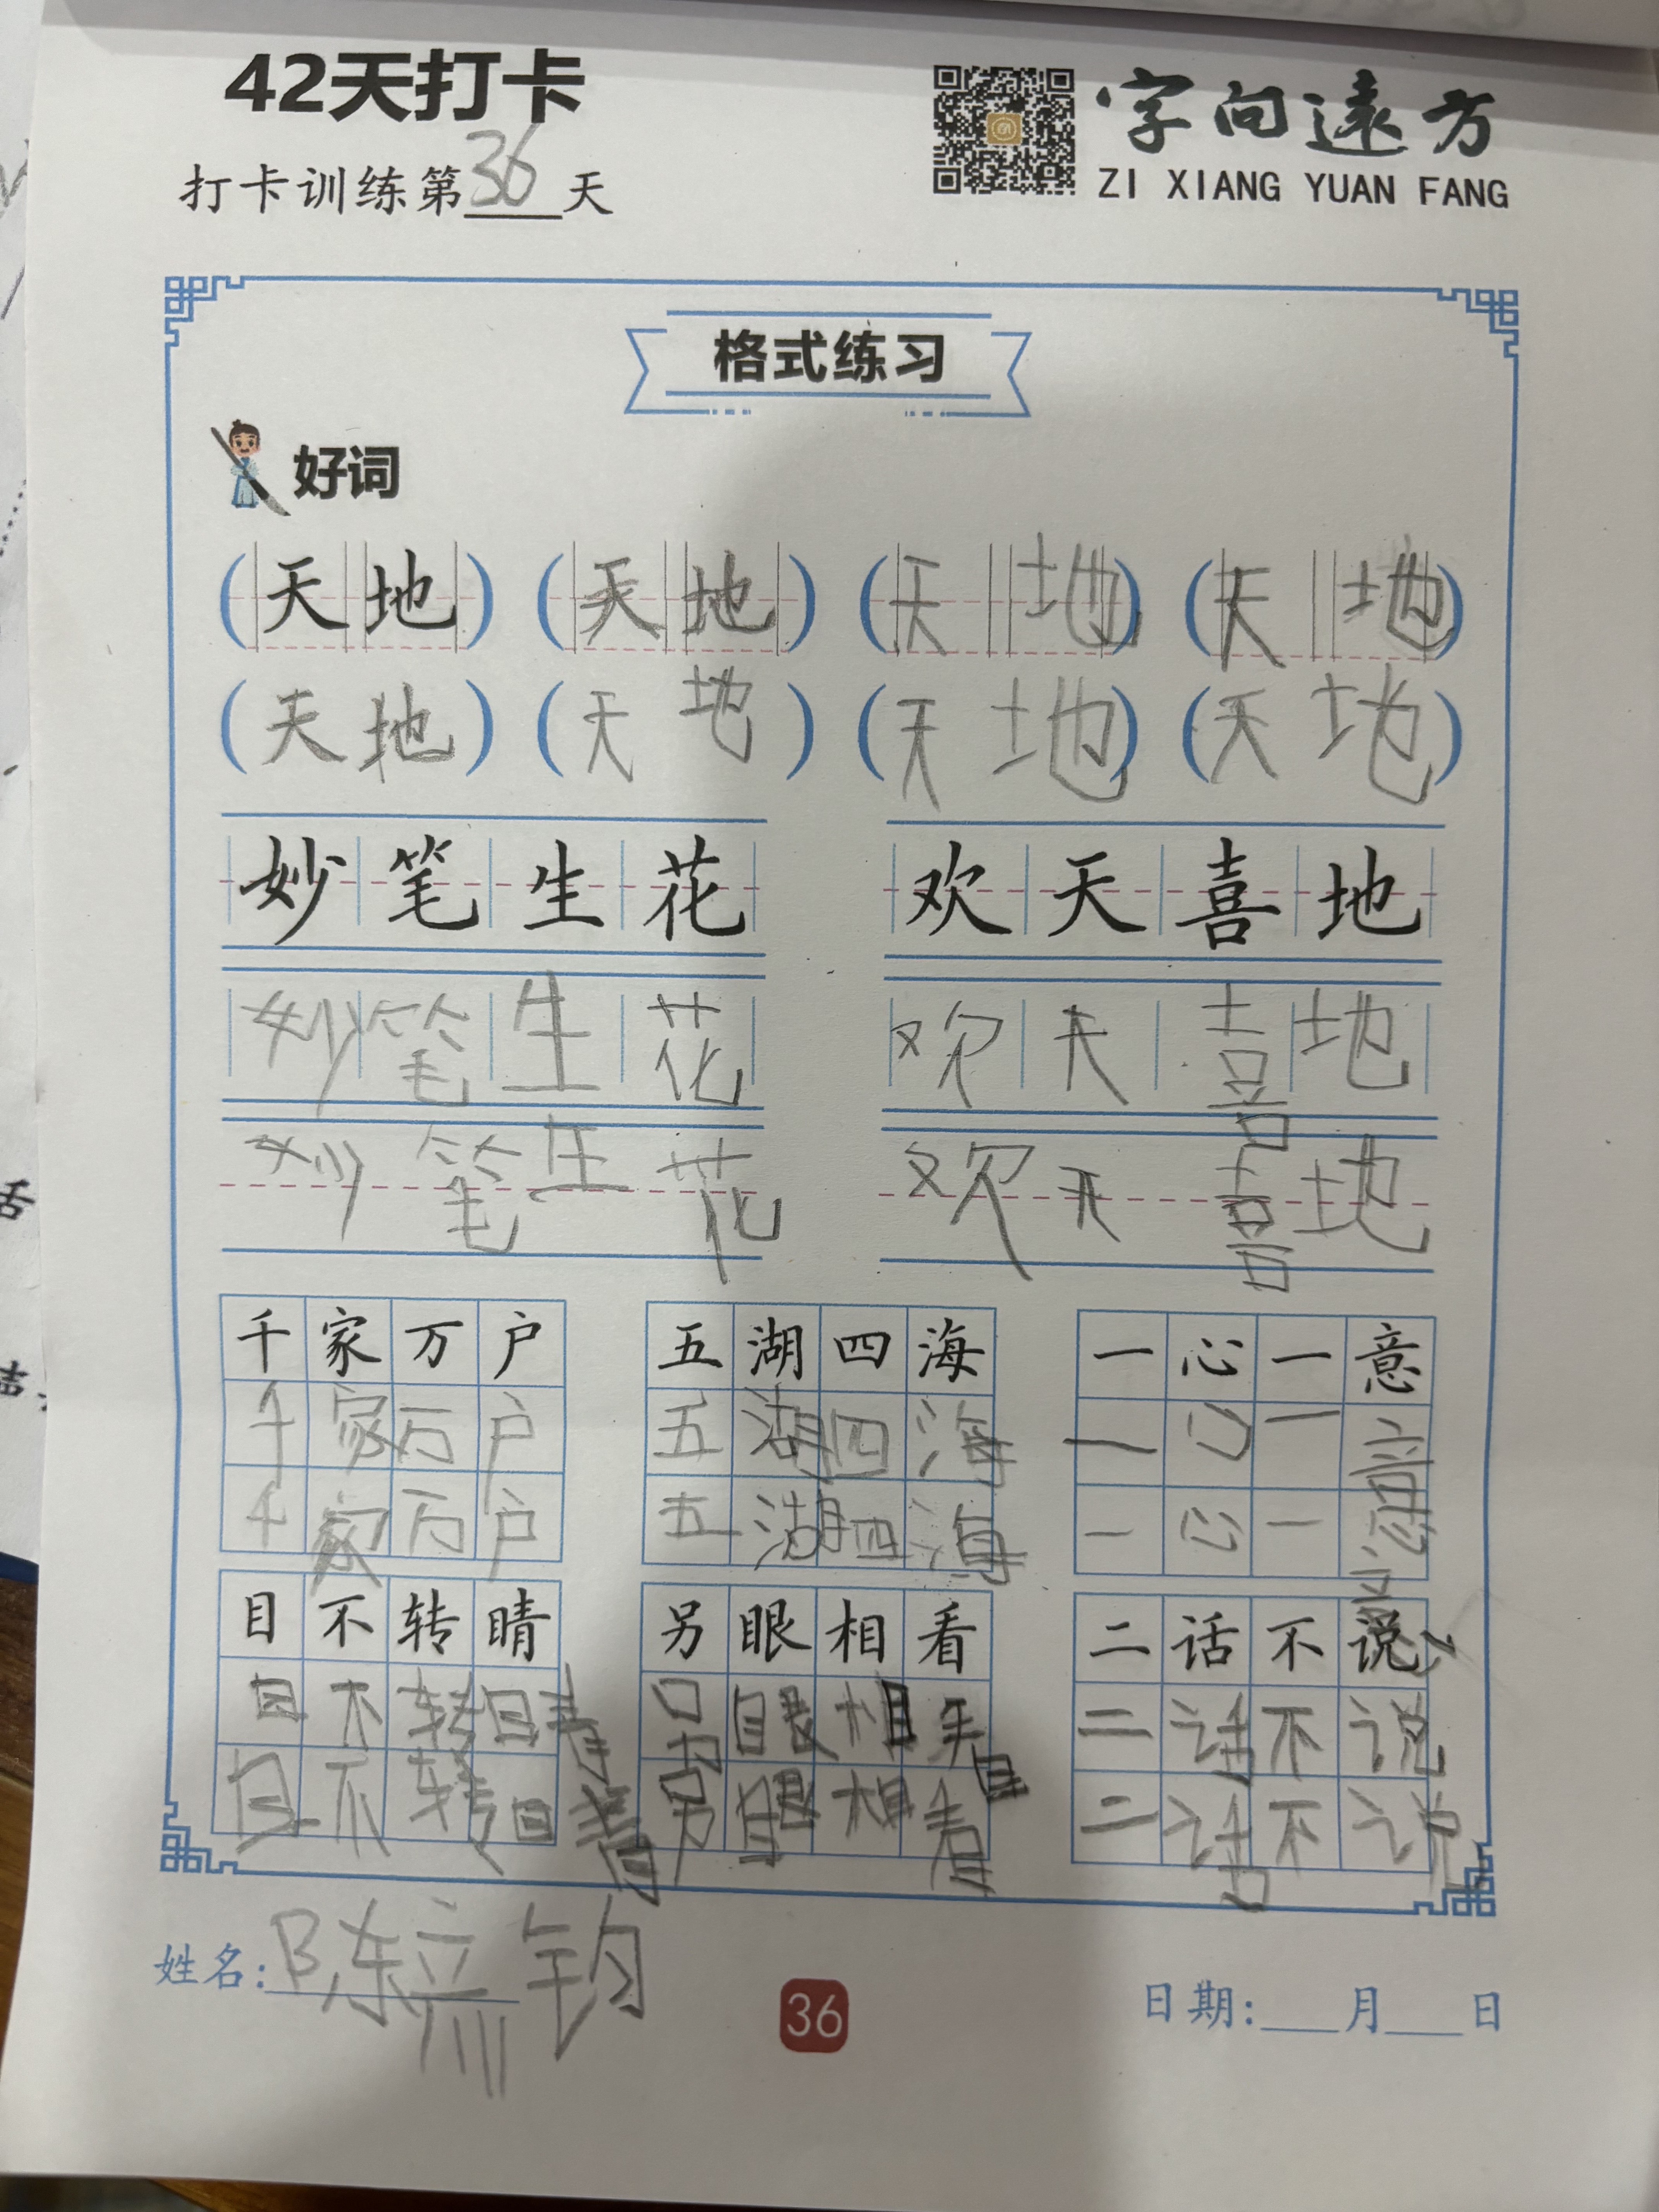 42天打卡
字向遠方
打卡训练第36天
ZI XIANG YUAN FANG
格式练习
好词
(天地) (天地) (天地) (天地)
(天地) (天地) (天地) (天地)
妙笔生花 欢天喜地
妙笔生花 欢天喜地
妙笔生花 欢天喜地
千家万户 五湖四海 一心一意
千家万户 五湖四海 一心一意
千家万户 五湖四海 一心一意
目不转睛 另眼相看 二话不说
目不转睛 另眼相看 二话不说
目不转睛 另眼相看 二话不说
姓名:陈 钧
36
日期:___月___日